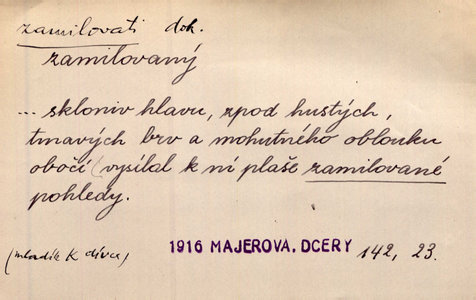 zamilovati dok.
zamilovaný
... skloniv hlavu, zpod hustých,
tmavých brv a mohutného oblouku
obočí (vysílal k ní plaše zamilované
pohledy.
(mladík k dívce)
1916 MAJEROVA, DCERY 142, 23.